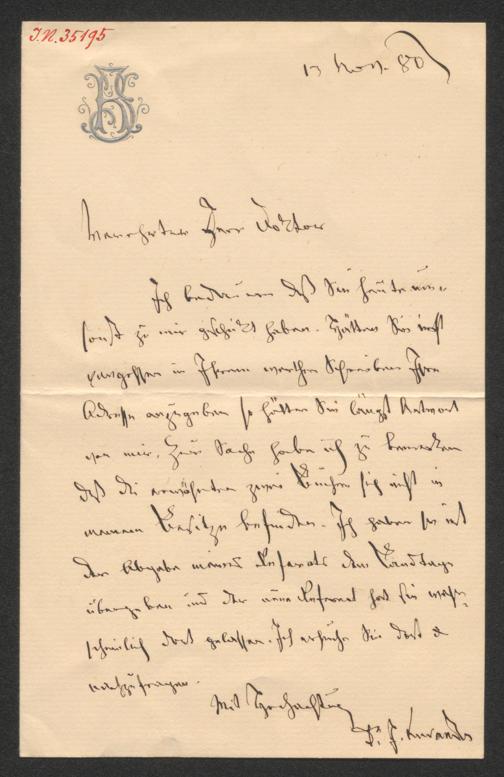 J.N. 35195
13 Nov. 80
Geehrter Herr Doktor
Ich bedauere daß Sie heute um-
sonst zu mir geschickt haben. Hätten Sie nicht
vergessen in Ihrem werthen Schreiben Ihre
Adresse anzugeben so hätten Sie längst Antwort
von mir. Zur Sache habe ich zu bemerken
daß die erwähnten zwei Bücher sich nicht in
meinem Besitze befinden. Ich habe sie mit
der Abgabe meines Referats dem Landtage
übergeben und der neue Referent hat sie wahr-
scheinlich dort gelassen. Ich ersuche Sie dort
nachzufragen.
Mit Hochachtung
Dr. J. Kuranda